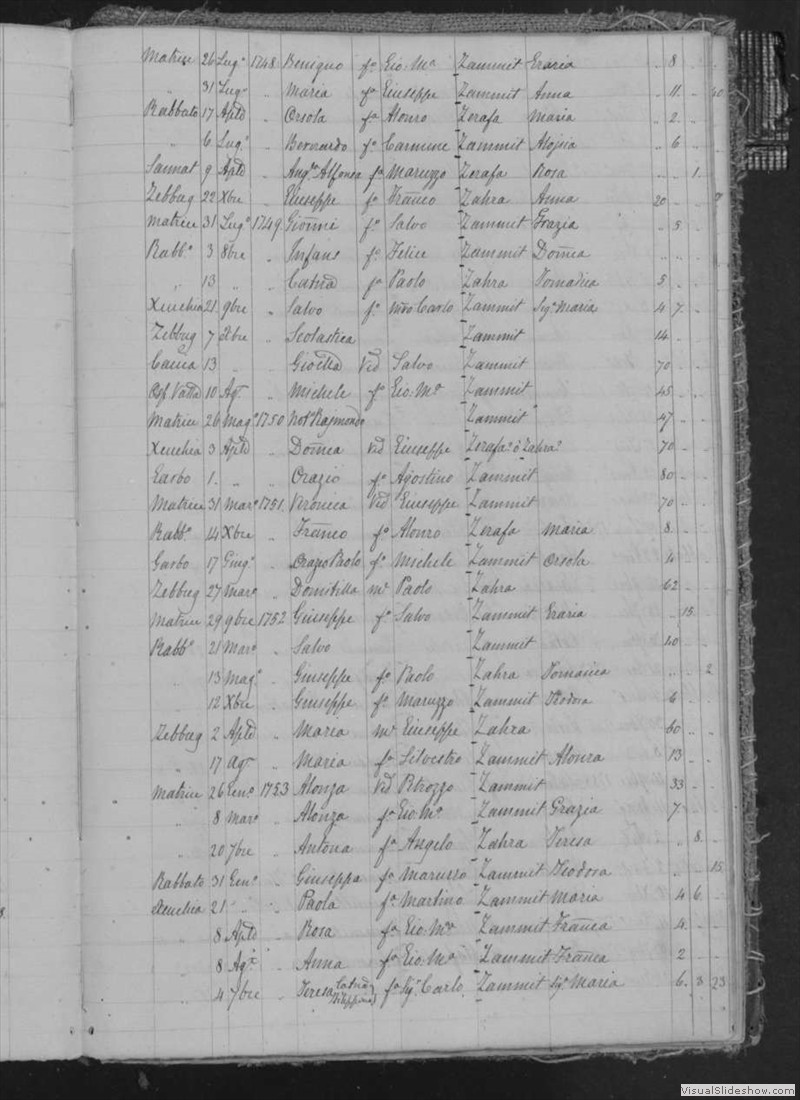 Matrice 26 Lug.o 1748 Benigno fo Gio: Ma Zammit Grazia .. 8 ..
.. 31 Lug.o .. Maria fa Giuseppe Zammit Anna .. 11 .. 40
Rabbato 17 Aple .. Orsola fa Alonzo Zerafa Maria .. 2 ..
.. 6 Lug.o .. Bernardo fo Carmine Zammit Alojsia .. 6 ..
Sannat 9 Aple .. Ang.a Alfonsa fa Maruzzo Zerafa Rosa .. .. 1 ..
Zebbug 22 Xbre .. Giuseppe fo Franco Zahra Anna 20 .. .. 7
Matrice 31 Lug.o 1749 Gionni fo Salvo Zammit Grazia .. 5 ..
Rabb.o 3 8bre .. Infans fo Felice Zammit Domca .. .. ..
.. 13 .. .. Catind fa Paolo Zahra Tomasica 5 ..
Xeuchia 21 9bre .. Salvo fo Mro Carlo Zammit Sig.a Maria 4 7 ..
Zebbug 7 Xbre .. Scolastica Zammit 14 ..
Caccia 13 .. Vid Salvo Zammit 70 ..
10 Ag.o .. Michele fo Gio: Ma Zammit 45 ..
Matrice 26 Mag.o 1750 Not. Rajmondo Zammit 47 ..
Xeuchia 3 Aple .. Domca Vid Giuseppe Zerafa? o Zahra? 70 ..
Garbo 1 .. .. Orazio fo Agostino Zammit 80 ..
Matrice 31 Mar.o 1751 Veronica Vid Giuseppe Zammit 70 ..
Rabb.o 14 Xbre .. Franco fo Alonzo Zerafa Maria 8 ..
Garbo 17 Giug.o .. Orazio Paolo fo Michele Zammit Orsola 4 ..
Zebbug 27 Mar.o .. Domitilla m.e Paolo Zahra 62 ..
Matrice 29 9bre 1752 Giuseppe fo Salvo Zammit Grazia .. 15 ..
Rabb.o 21 Mar.o .. Salvo Zammit 40 ..
.. 13 Mag.o .. Giuseppe fo Paolo Zahra Tomasica .. .. 2
.. 12 Xbre .. Giuseppe fo Maruzzo Zammit Teodora 6 ..
Zebbug 2 Aple .. Maria m.e Giuseppe Zahra 60 ..
.. 17 Ag.o .. Maria fa Silvestro Zammit Alonza 13 ..
Matrice 26 Gen.o 1753 Alonza Vid Petrozzo Zammit 33 ..
.. 8 Mar.o .. Alonza fa Gio: Ma Zammit Grazia 7 ..
.. 20 7bre .. Antona fa Angelo Zahra Teresa .. 8 ..
Rabbato 31 Gen.o .. Giuseppa fa Maruzzo Zammit Teodora .. .. 15
Xeuchia 21 .. .. Paola fa Martino Zammit Maria 4 6 ..
.. 8 Aple .. Rosa fa Gio: Ma Zammit Franca 4 ..
.. 8 Ag.o .. Anna fa Gio: Ma Zammit Franca 2 ..
.. 4 7bre .. Teresa fa Sig.r Carlo Zammit Sig.a Maria 6 3 23
VisualSlideshow.com